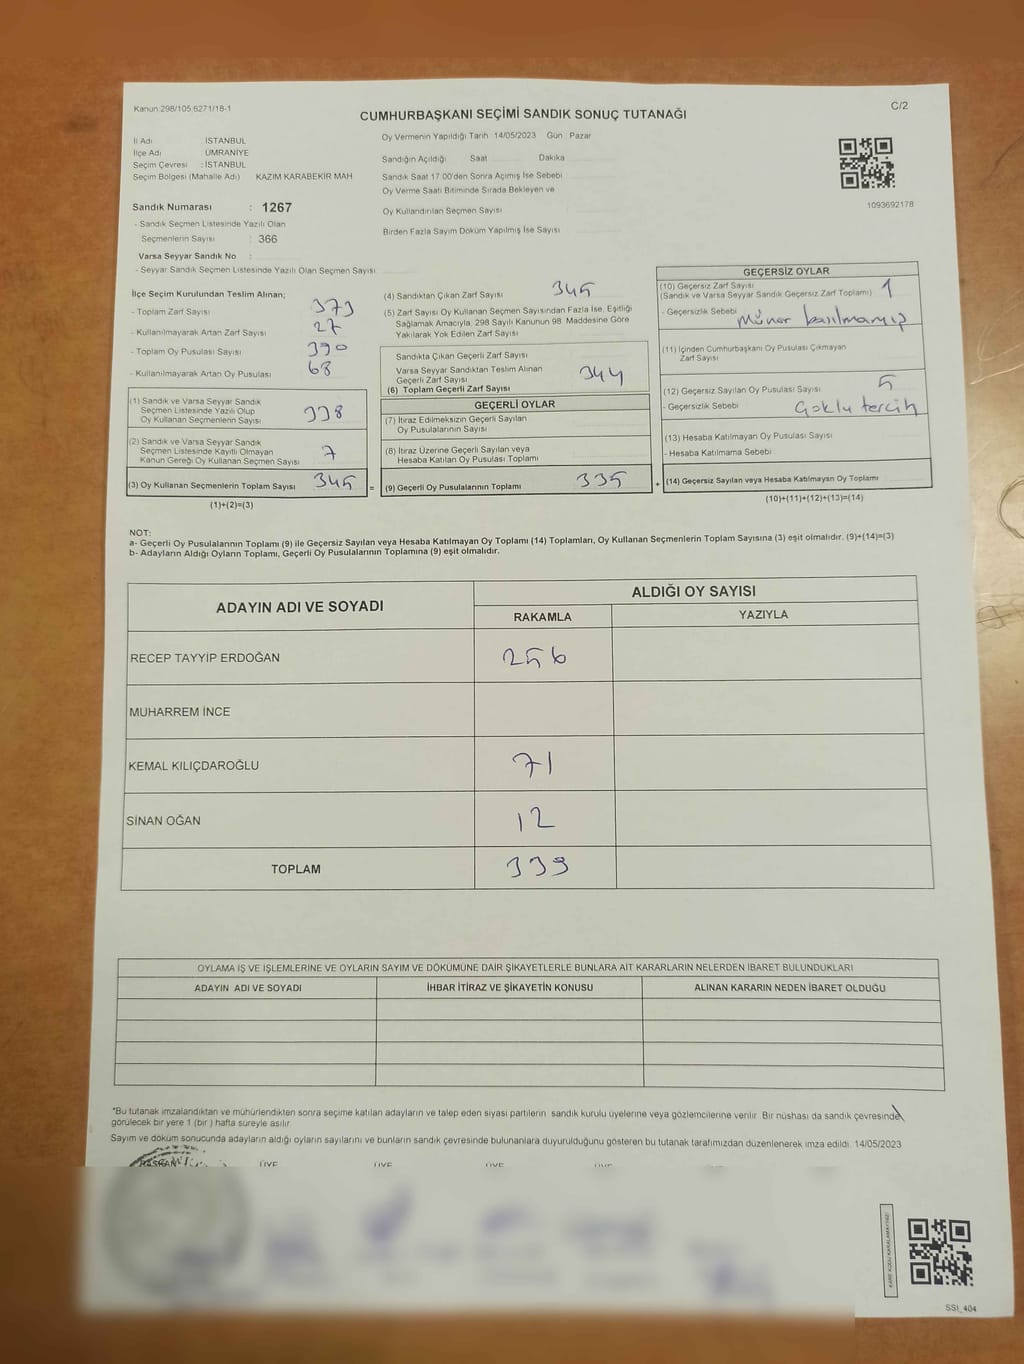 Kanun:298/105,6271/18-1
C/2
CUMHURBAŞKANI SEÇİMİ SANDIK SONUÇ TUTANAĞI
İl Adı İSTANBUL
İlçe Adı ÜMRANİYE
Seçim Çevresi : İSTANBUL
Seçim Bölgesi (Mahalle Adı) KAZIM KARABEKİR MAH
Sandık Numarası : 1267
- Sandık Seçmen Listesinde Yazılı Olan
Seçmenlerin Sayısı : 366
Varsa Seyyar Sandık No :
- Seyyar Sandık Seçmen Listesinde Yazılı Olan Seçmen Sayısı
Oy Vermenin Yapıldığı Tarih 14/05/2023 Gün Pazar
Sandığın Açıldığı Saat Dakika
Sandık Saat 17:00'den Sonra Açılmış İse Sebebi
Oy Verme Saati Bitiminde Sırada Bekleyen ve
Oy Kullandırılan Seçmen Sayısı
Birden Fazla Sayım Döküm Yapılmış İse Sayısı
1093692178
İlçe Seçim Kurulundan Teslim Alınan;
- Toplam Zarf Sayısı 373
- Kullanılmayarak Artan Zarf Sayısı 27
- Toplam Oy Pusulası Sayısı 390
- Kullanılmayarak Artan Oy Pusulası 68
(1) Sandık ve Varsa Seyyar Sandık
Seçmen Listesinde Yazılı Olup
Oy Kullanan Seçmenlerin Sayısı 338
(2) Sandık ve Varsa Seyyar Sandık
Seçmen Listesinde Kayıtlı Olmayan
Kanun Gereği Oy Kullanan Seçmen Sayısı 7
(3) Oy Kullanan Seçmenlerin Toplam Sayısı 345 =
(1)+(2)=(3)
(4) Sandıktan Çıkan Zarf Sayısı 345
(5) Zarf Sayısı Oy Kullanan Seçmen Sayısından Fazla İse, Eşitliği
Sağlamak Amacıyla, 298 Sayılı Kanunun 98. Maddesine Göre
Yakılarak Yok Edilen Zarf Sayısı
Sandıkta Çıkan Geçerli Zarf Sayısı
Varsa Seyyar Sandıktan Teslim Alınan
Geçerli Zarf Sayısı
(6) Toplam Geçerli Zarf Sayısı 344
GEÇERLİ OYLAR
(7) İtiraz Edilmeksizin Geçerli Sayılan
Oy Pusulalarının Sayısı
(8) İtiraz Üzerine Geçerli Sayılan veya
Hesaba Katılan Oy Pusulası Toplamı
(9) Geçerli Oy Pusulalarının Toplamı 335 +
GEÇERSİZ OYLAR
(10) Geçersiz Zarf Sayısı
(Sandık ve Varsa Seyyar Sandık Geçersiz Zarf Toplamı) 1
- Geçersizlik Sebebi Mühür basılmamış
(11) İçinden Cumhurbaşkanı Oy Pusulası Çıkmayan
Zarf Sayısı
(12) Geçersiz Sayılan Oy Pusulası Sayısı 5
- Geçersizlik Sebebi Çoklu tercih
(13) Hesaba Katılmayan Oy Pusulası Sayısı
- Hesaba Katılmama Sebebi
(14) Geçersiz Sayılan veya Hesaba Katılmayan Oy Toplamı
(10)+(11)+(12)+(13)=(14)
NOT:
a- Geçerli Oy Pusulalarının Toplamı (9) ile Geçersiz Sayılan veya Hesaba Katılmayan Oy Toplamı (14) Toplamları, Oy Kullanan Seçmenlerin Toplam Sayısına (3) eşit olmalıdır. (9)+(14)=(3)
b- Adayların Aldığı Oyların Toplamı, Geçerli Oy Pusulalarının Toplamına (9) eşit olmalıdır.
ADAYIN ADI VE SOYADI
ALDIĞI OY SAYISI
RAKAMLA YAZIYLA
RECEP TAYYİP ERDOĞAN 256
MUHARREM İNCE
KEMAL KILIÇDAROĞLU 71
SİNAN OĞAN 12
TOPLAM 339
OYLAMA İŞ VE İŞLEMLERİNE VE OYLARIN SAYIM VE DÖKÜMÜNE DAİR ŞİKAYETLERLE BUNLARA AİT KARARLARIN NELERDEN İBARET BULUNDUKLARI
ADAYIN ADI VE SOYADI İHBAR İTİRAZ VE ŞİKAYETİN KONUSU ALINAN KARARIN NEDEN İBARET OLDUĞU
*Bu tutanak imzalandıktan ve mühürlendikten sonra seçime katılan adayların ve talep eden siyasi partilerin sandık kurulu üyelerine veya gözlemcilerine verilir. Bir nüshası da sandık çevresinde
görülecek bir yere 1 (bir) hafta süreyle asılır.
Sayım ve döküm sonucunda adayların aldığı oyların sayılarını ve bunların sandık çevresinde bulunanlara duyurulduğunu gösteren bu tutanak tarafımızdan düzenlenerek imza edildi. 14/05/2023
BAŞKAN ÜYE ÜYE ÜYE ÜYE
KARE KODU KARALAMAYINIZ!
SSI_404